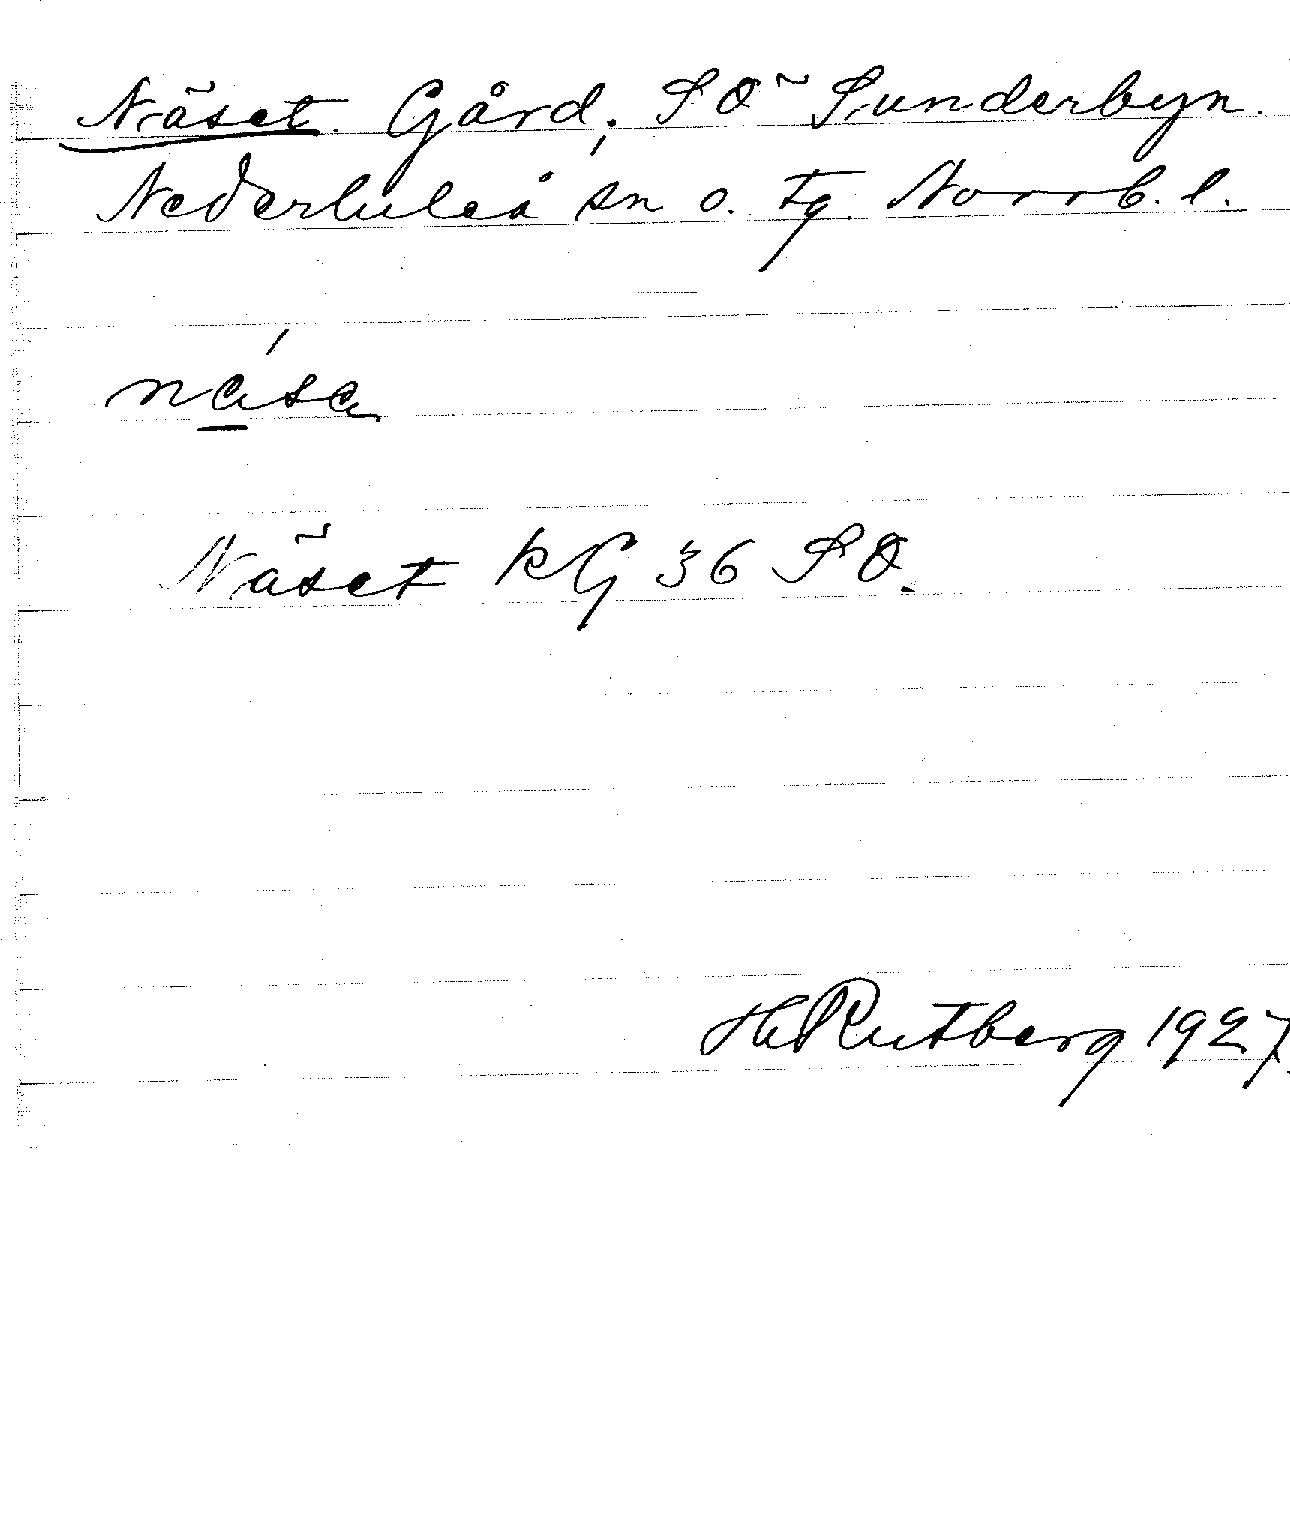 Näset. Gård; SÖ Sunderbyn.
Nederluleå sn o. tg. Norrb. l.
nása
Näset kG 36 SO.
H Rutberg 1927.